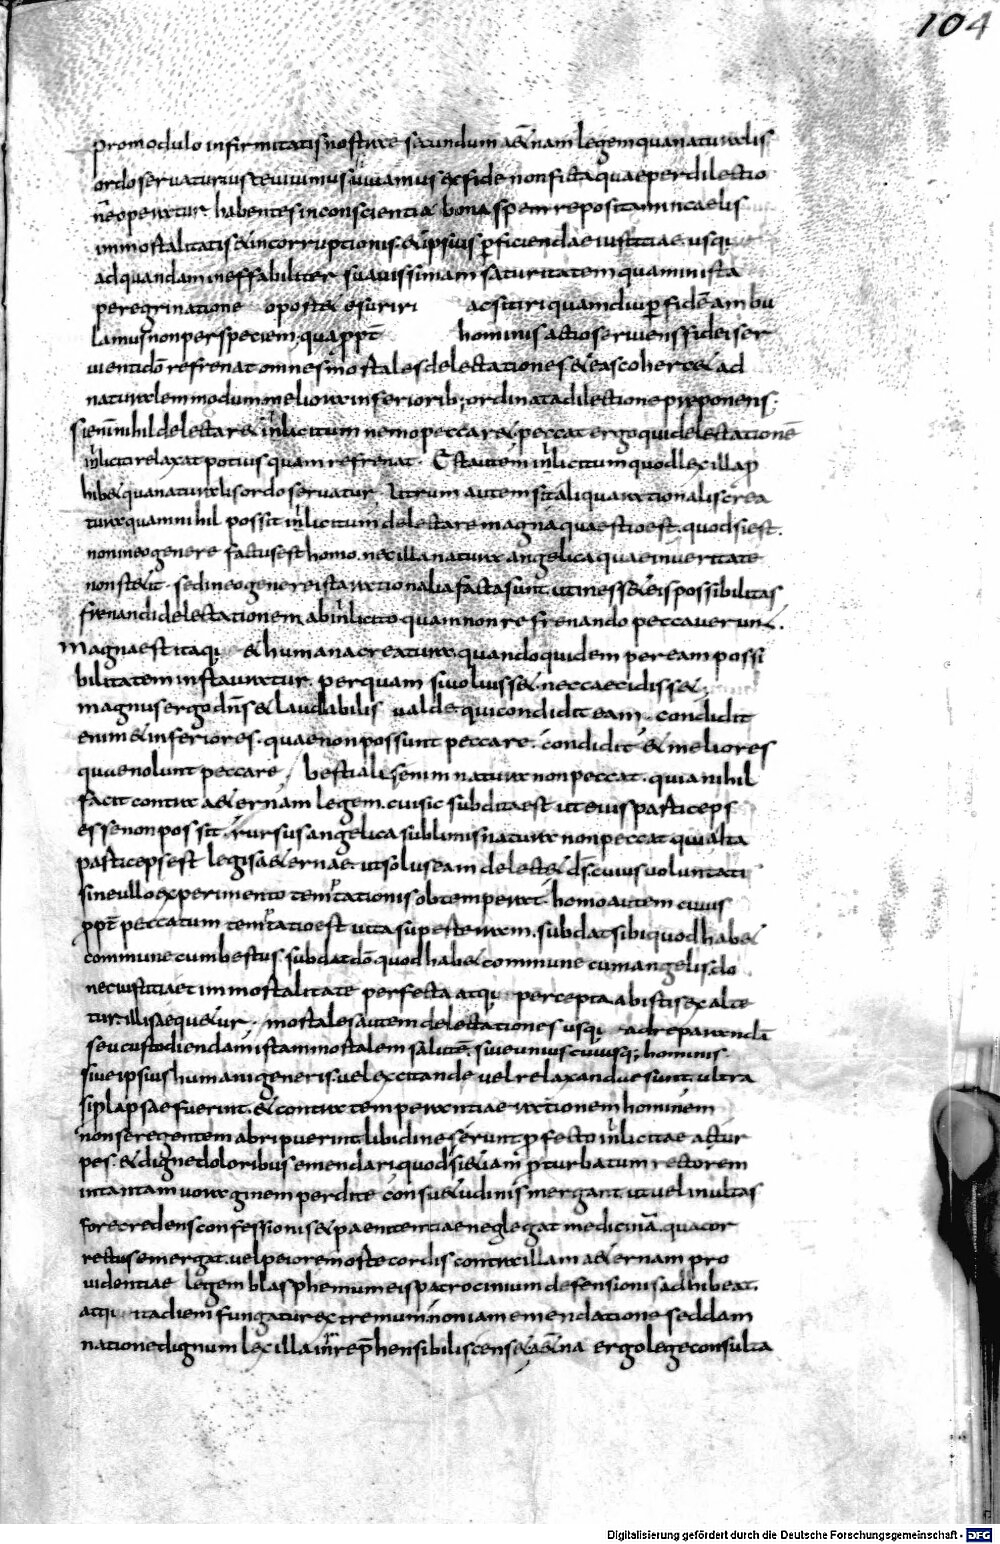 104
pro modulo infirmitatis nostrae secundum aeternam legem qua naturalis
ordo servatur iuste vivimus si vivamus ex fide non ficta quae per dilectio
nē operatur habentes in conscientia bona spem repositam in caelis
immortalitatis & incorruptionis & ipsius pficiendae iustitiae usq;
ad quandam ineffabiliter suavissimam saturitatem quam in ista
peregrinatione oport& esuriri ac sitiri quamdiu p fidē ambu
lamus non per speciem quappt̄ hominis actio serviens fidei ser
vienti dō refrenat omnes mortales delectationes & eas coherc& ad
naturalem modum meliora inferiorib; ordinata dilectione praeponens.
Si enī nihil delectar& inlicitum nemo peccar& peccat ergo qui delectationē
inliciti relaxat potius quam refrenat. Est autem inlicitum quod lex illa p
hib& qua naturalis ordo servatur. Utrum autem sit aliqua rationalis crea
tura quam nihil possit inlicitum delectare magna quaestio est. quod si est.
non in eo genere factus est homo. nec illa natura angelica quae in veritate
non st&it. sed in eo genere ista rationalia facta sunt. ut iness& eis possibilitas
frenandi delectationem ab inlicito quam non refrenando peccaverunt.
Magna est itaq; & humana creatura. quandoquidem per eam possi
bilitatem instauratur. per quam si voluiss& nec caecidiss&
magnus ergo dn̄s & laudabilis valde qui condidit eam. condidit
enim & inferiores. quae non possunt peccare. condidit & meliores
quae nolunt peccare / bestialis enim natura non peccat. quia nihil
facit contra aeternam legem. cui sic subdita est ut eius particeps
esse non possit. rursus angelica sublimis natura non peccat quia ita
particeps est legis aeternae. ut solus eam delect& ds̄. cuius voluntati
sine ullo experimento temtationis obtemperat. homo autem cuius
ppt̄ peccatum temtatio est vita super terram. subdat sibi quod hab&
commune cum bestiis. subdat dō quod hab& commune cum angelis. do
nec iustitia et immortalitate perfecta atq; percepta ab istis exalte
tur. illis aequ&ur. mortales autem delectationes usq; ad reparandā
seu custodiendam istam mortalem salutē. sive unius cuiusq; hominis.
sive ipsius humani generis. vel excitandae vel relaxandae sunt. ultra
si plapsae fuerint. & contra temperantiae rationem hominem
non se regentem abripuerint libidines erunt pfecto inlicitae ac tur
pes. & dignae doloribus emendari quod si &iam pturbatum rectorem
in tantam voraginem perditae consu&udinis mergant. ut vel inultas
fore credens confessionis & paenitentiae neglegat medicinā. qua cor
rectus emergat. vel peiore morte cordis contra illam aeternam pro
videntiae legem blasphemum eis patrocinium defensionis adhibeat.
atq; ita diem fungatur extremum. non iam emendatione sed dam
natione dignum lex illa inrephensibilis cens& aet̄na ergo lege consulta
Digitalisierung gefördert durch die Deutsche Forschungsgemeinschaft - DFG